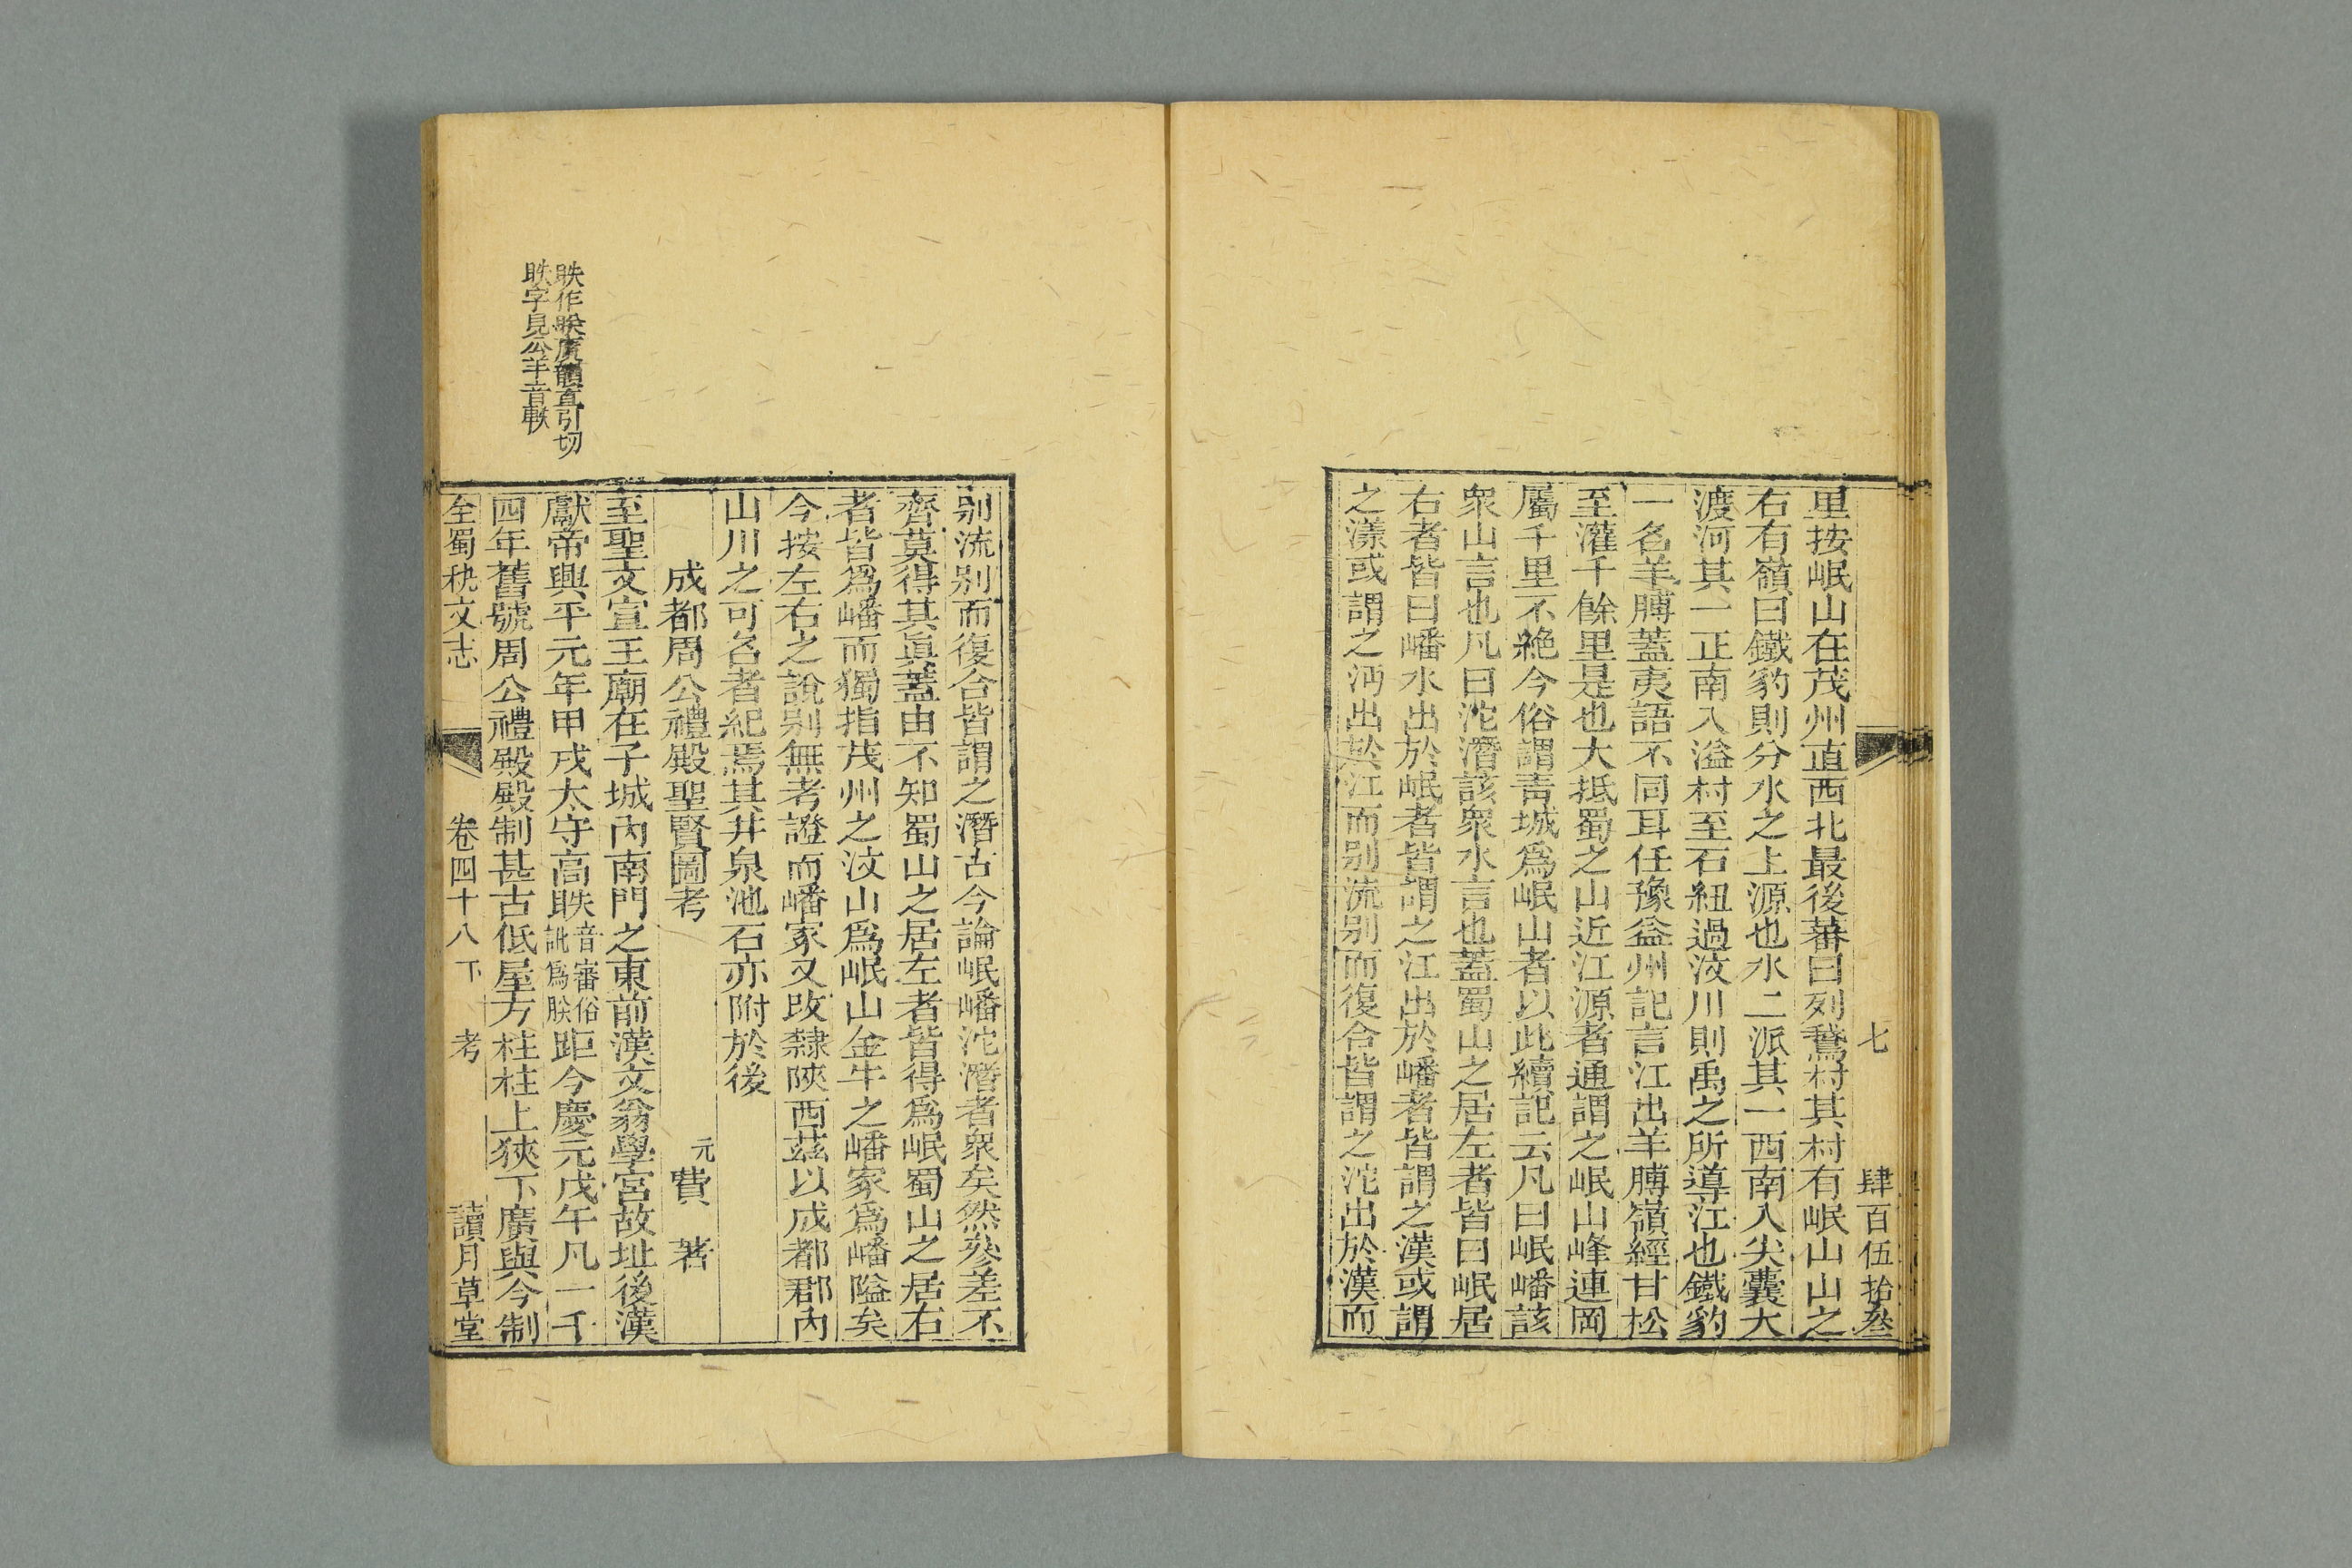 七 肆百伍拾叁
里按岷山在茂州直西北最後蕃曰列鵞村其村有岷山山之
右有嶺曰鐵豹則分水之上源也水二派其一西南入尖囊大
渡河其一正南入溢村至石紐過汶川則禹之所導江也鐵豹
一名羊膊蓋夷語不同耳任豫益州記言江出羊膊嶺經甘松
至灌千餘里是也大抵蜀之山近江源者通謂之岷山峰連岡
屬千里不絶今俗謂青城爲岷山者以此續記云凡曰岷嶓該
衆山言也凡曰沱潛該衆水言也蓋蜀山之居左者皆曰岷居
右者皆曰嶓水出於岷者皆謂之江出於嶓者皆謂之漢或謂
之漾或謂之沔出於江而别流别而復合皆謂之沱出於漢而
别流别而復合皆謂之潛古今論岷嶓沱潛者衆矣然參差不
齊莫得其眞蓋由不知蜀山之居左者皆得爲岷蜀山之居右
者皆爲嶓而獨指茂州之汶山爲岷山金牛之嶓冢爲嶓隘矣
今按左右之說别無考證而嶓冢又改隸陝西茲以成都郡內
山川之可名者紀焉其井泉池石亦附於後
成都周公禮殿聖賢圖考
元費 著
至聖文宣王廟在子城內南門之東前漢文翁學宮故址後漢
獻帝興平元年甲戌太守高眣音審俗訛爲朕距今慶元戊午凡一千
四年舊號周公禮殿殿制甚古低屋方柱柱上狹下廣與今制
眣作䀼廣韻直引切
眣字見公羊音軼
全蜀秇文志 卷四十八下 考 讀月草堂